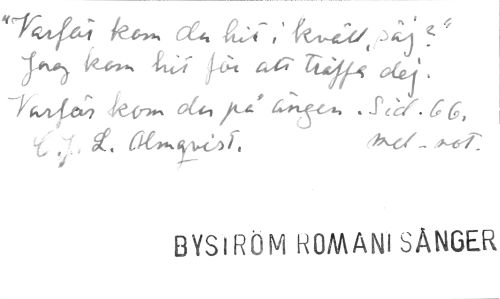 "Varför kom du hit i kväll, säj?"
Jag kom hit för att träffa dej.
Varför kom du på ängen. Sid. 66.
C. J. L. Almqvist. mel-not.
BYSTRÖM ROMANI SÅNGER